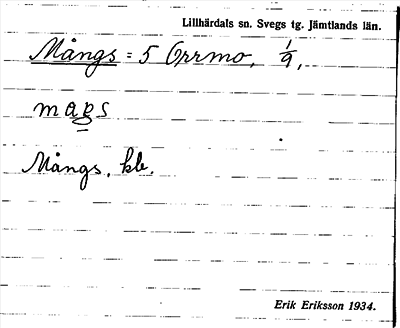 Lillhärdals sn. Svegs tg. Jämtlands län.
Mångs = 5 Orrmo, 1/9,
Mångs, kb.
Erik Eriksson 1934.